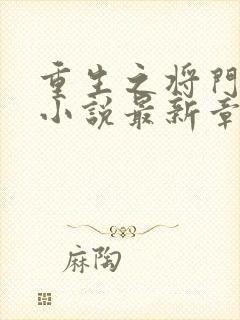 重生之将門
小说最新章
麻陶